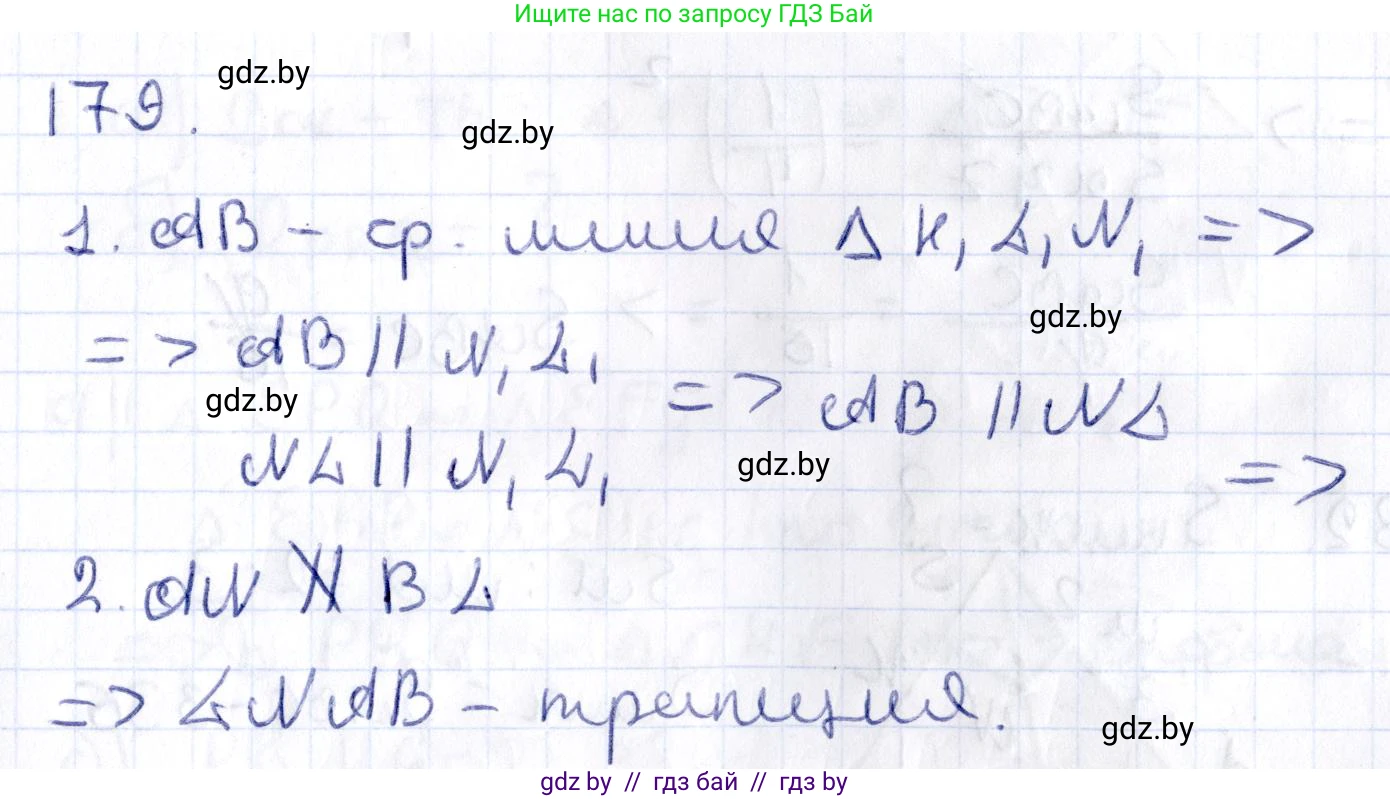 Ищите нас по запросу ГДЗ Бай
179. gdz.by
gdz.by
1. AB - ср. линия Δ K₁ L₁ N₁ =>
gdz.by
=> AB || N₁ L₁
gdz.by => AB || NL
NL || N₁ L₁ gdz.by =>
2. AN ∦ BL
=> LNAB - трапеция.
gdz.by
gdz by // гдз бай // гдз by